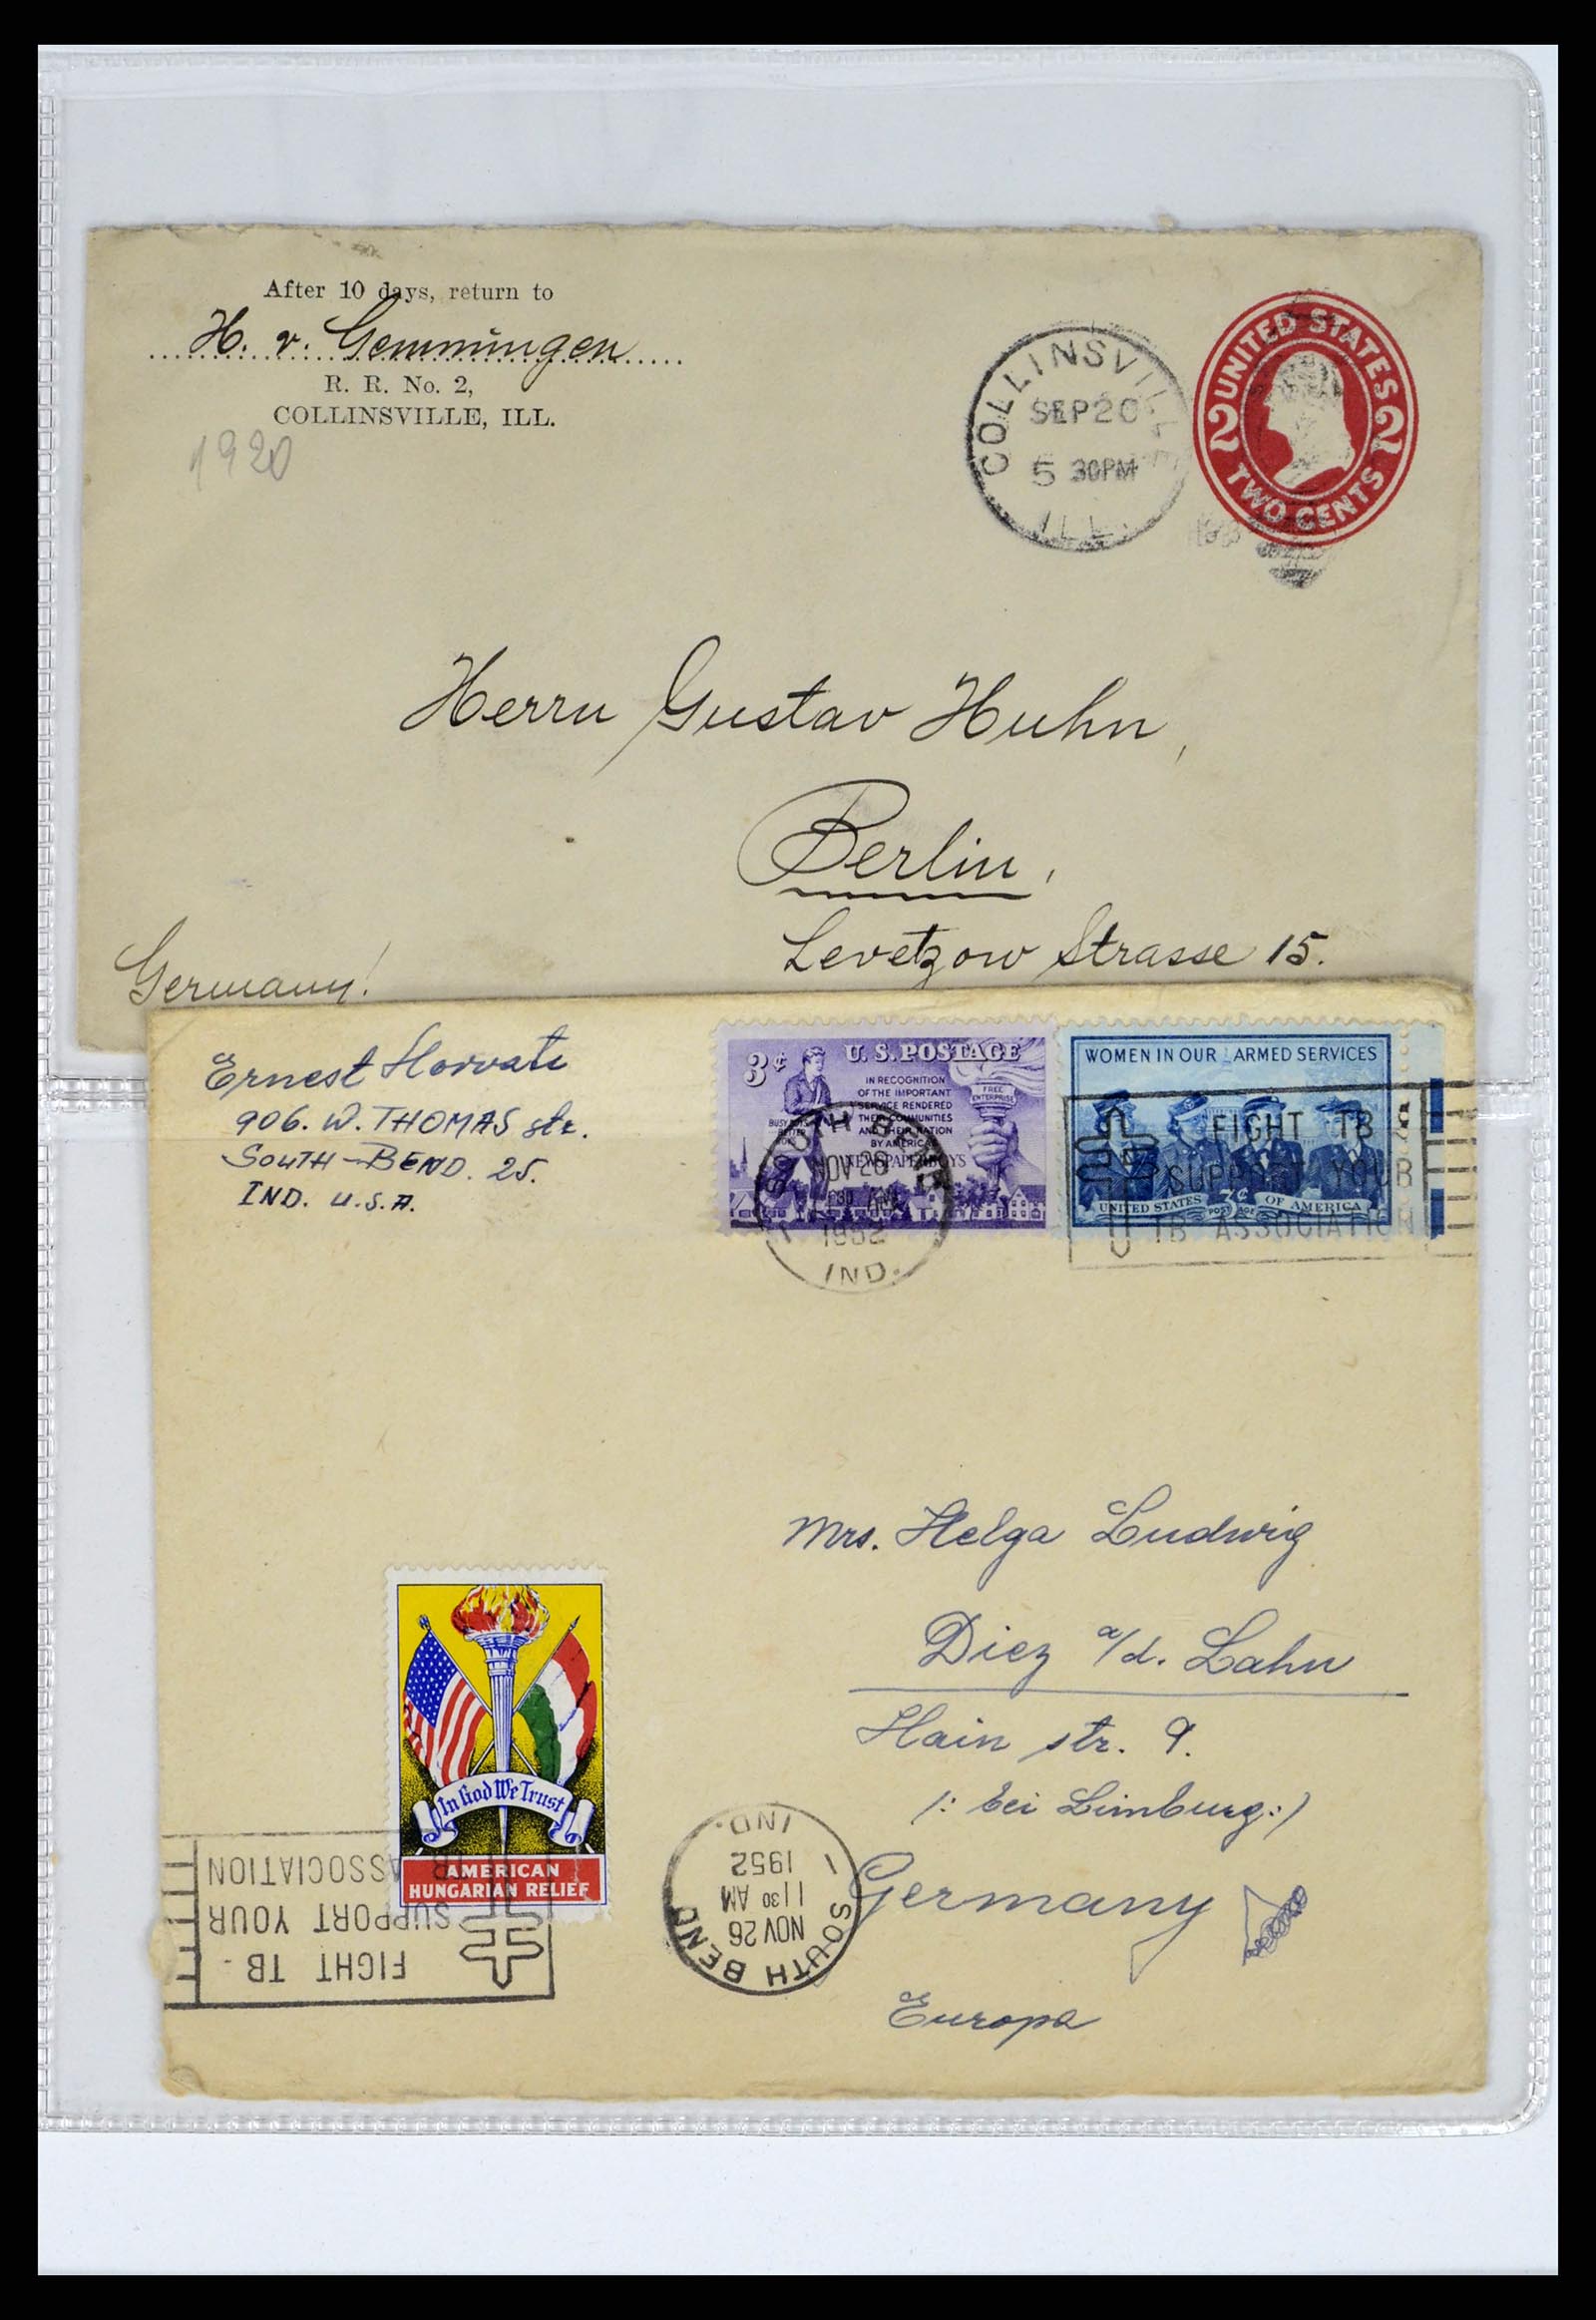 After 10 days, return to
H. v. Gemmingen
R. R. No. 2,
COLLINSVILLE, ILL.
1920
COLLINSVILLE
SEP 20
5 30PM
ILL.
UNITED STATES
2 2
TWO CENTS
Herrn Gustav Huhn,
Berlin,
Levetzow Strasse 15.
Germany!
Ernest Horvath
906. W. THOMAS str.
SOUTH-BEND. 25.
IND. U.S.A.
3¢ U.S. POSTAGE
IN RECOGNITION
OF THE IMPORTANT
SERVICE RENDERED
THEIR COMMUNITIES
AND THEIR NATION
BY AMERICA'S
NEWSPAPERBOYS
FREE
ENTERPRISE
BUSY BOYS
BETTER
BOYS
SOUTH BEND
NOV 26
1130 AM
1952
IND.
WOMEN IN OUR ARMED SERVICES
UNITED STATES OF AMERICA
POSTAGE
FIGHT TB
SUPPORT YOUR
TB ASSOCIATION
Mrs. Helga Ludwig
Diez a/d. Lahn
Hain str. 9.
/: bei Limburg :/
Germany
Europa
In God We Trust
AMERICAN
HUNGARIAN RELIEF
FIGHT TB
SUPPORT YOUR
TB ASSOCIATION
SOUTH BEND
NOV 26
11 30 AM
1952
IND.